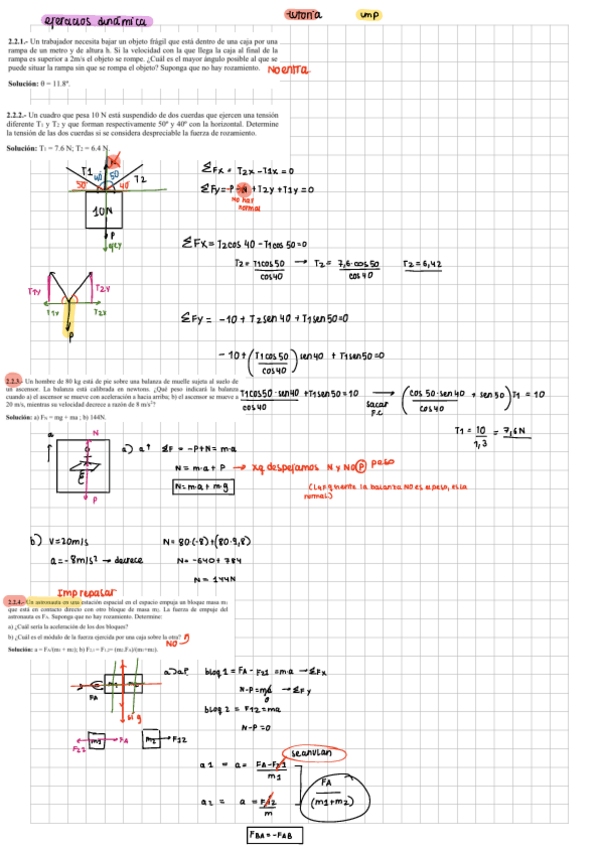 ejercicios dinámica
tutoria
ump
2.2.1.- Un trabajador necesita bajar un objeto frágil que está dentro de una caja por una
rampa de un metro y de altura h. Si la velocidad con la que llega la caja al final de la
rampa es superior a 2m/s el objeto se rompe. ¿Cuál es el mayor ángulo posible al que se
puede situar la rampa sin que se rompa el objeto? Suponga que no hay rozamiento.
No entra
Solución: θ = 11.8º.
2.2.2.- Un cuadro que pesa 10 N está suspendido de dos cuerdas que ejercen una tensión
diferente T1 y T2 y que forman respectivamente 50º y 40º con la horizontal. Determine
la tensión de las dos cuerdas si se considera despreciable la fuerza de rozamiento.
Solución: T1 = 7.6 N; T2 = 6.4 N.
N
T1 40 50 T2
50 40
10N
P
ΣFx = T2x - T1x = 0
ΣFy = -P + N + T2y + T1y = 0
no hay
normal
ΣFx = T2cos 40 - T1cos 50 = 0
T2 = T1cos50/cos40 → T2 = 7,6·cos50/cos40 T2 = 6,42
T1y T2y
T1x T2x
P
ΣFy = -10 + T2sen40 + T1sen50=0
-10+(T1cos50/cos40)sen40 + T1sen50=0
2.2.3.- Un hombre de 80 kg está de pie sobre una balanza de muelle sujeta al suelo de
un ascensor. La balanza está calibrada en newtons. ¿Qué peso indicará la balanza
cuando a) el ascensor se mueve con aceleración a hacia arriba; b) el ascensor se mueve a
20 m/s, mientras su velocidad decrece a razón de 8 m/s²?
T1cos50·sen40/cos40 + T1sen50 = 10 → sacar F.C (cos50·sen40/cos40 + sen50)T1 = 10
Solución: a) FN = mg + ma ; b) 144N.
T1 = 10/1,3 = 7,6N
a
N
P
a) a↑ ΣF = -P+N= m·a
N = m·a + P → xq despejamos N y NO P peso
N=m·a+m·g
(Lo q mide la balanza NO es el peso, es la
normal)
b) V=20m/s N= 80·(-8)+(80·9,8)
a=-8m/s² → decrece N= -640+784
N= 144N
Imp repasar
2.2.4.- Un astronauta en una estación espacial en el espacio empuja un bloque masa m1
que está en contacto directo con otro bloque de masa m2. La fuerza de empuje del
astronauta es FA. Suponga que no hay rozamiento. Determine:
a) ¿Cuál sería la aceleración de los dos bloques?
b) ¿Cuál es el módulo de la fuerza ejercida por una caja sobre la otra?
NO
a) a? bloq 1 = FA - F21 = m·a → ΣFx
N-P=m·a → ΣFy
0
FA
bloq 2 = F12 = ma
N-P=0
F21 m1 FA m2 F12
se anulan
a1 = a = FA-F21/m1
FA/(m1+m2)
a2 = a = F12/m
FBA = -FAB